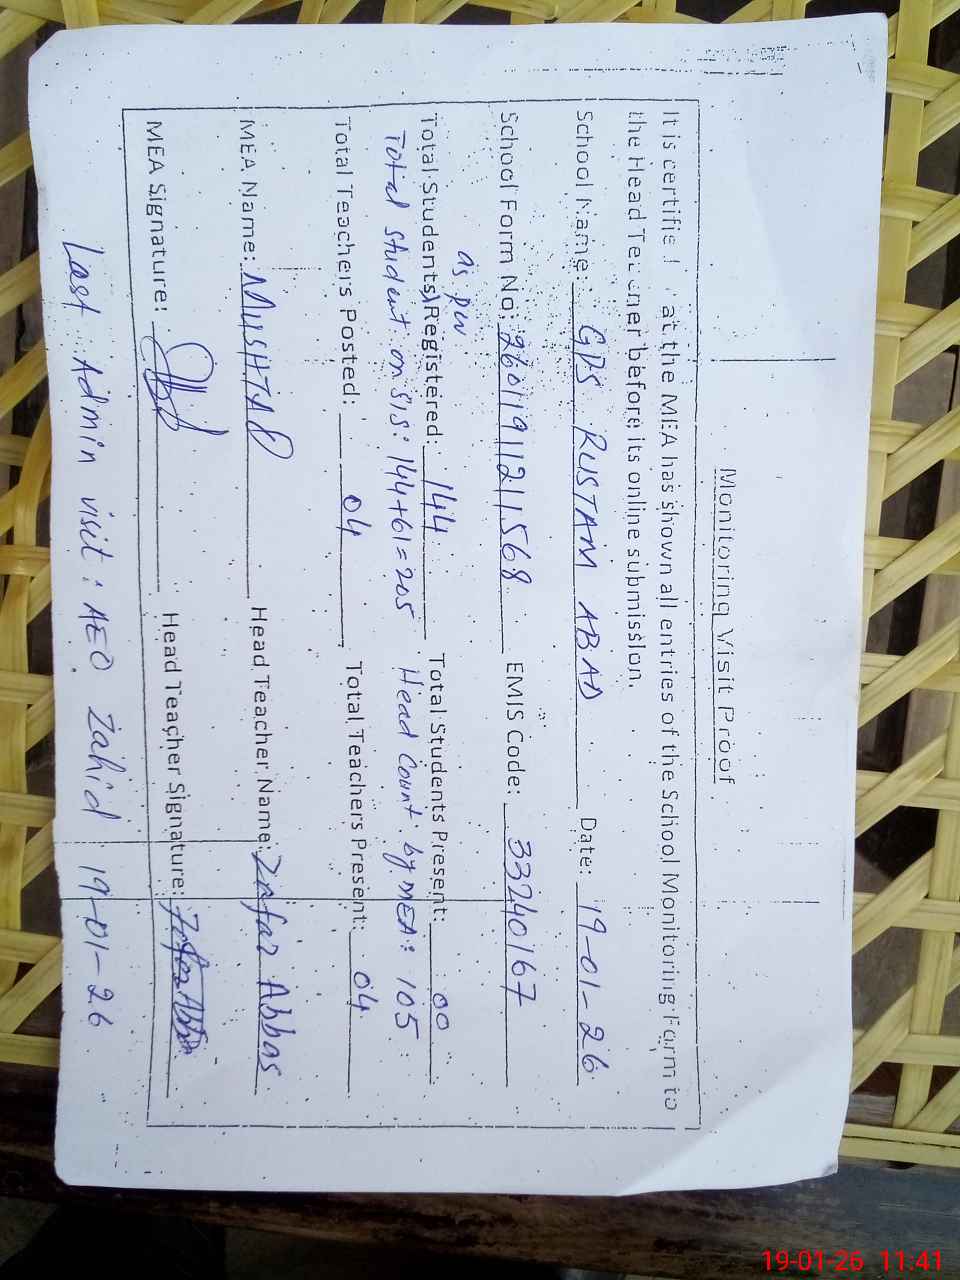 Monitoring Visit Proof
It is certified that the MEA has shown all entries of the School Monitoring Form to
the Head Teacher before its online submission.
School Name: GPS RUSTAM ABAD Date: 19-01-26
School Form No: 26011911211568 EMIS Code: 33240167
as per
Total Students Registered: 144 Total Students Present: 00
Total student on SIS: 144+61=205 Head Count by MEA: 105
Total Teachers Posted: 04 Total Teachers Present: 04
MEA Name: MUSHTAQ Head Teacher Name: Zafar Abbas
MEA Signature: Head Teacher Signature: Zafar Abbas
Last Admin visit: AEO Zahid 19-01-26
19-01-26 11:41